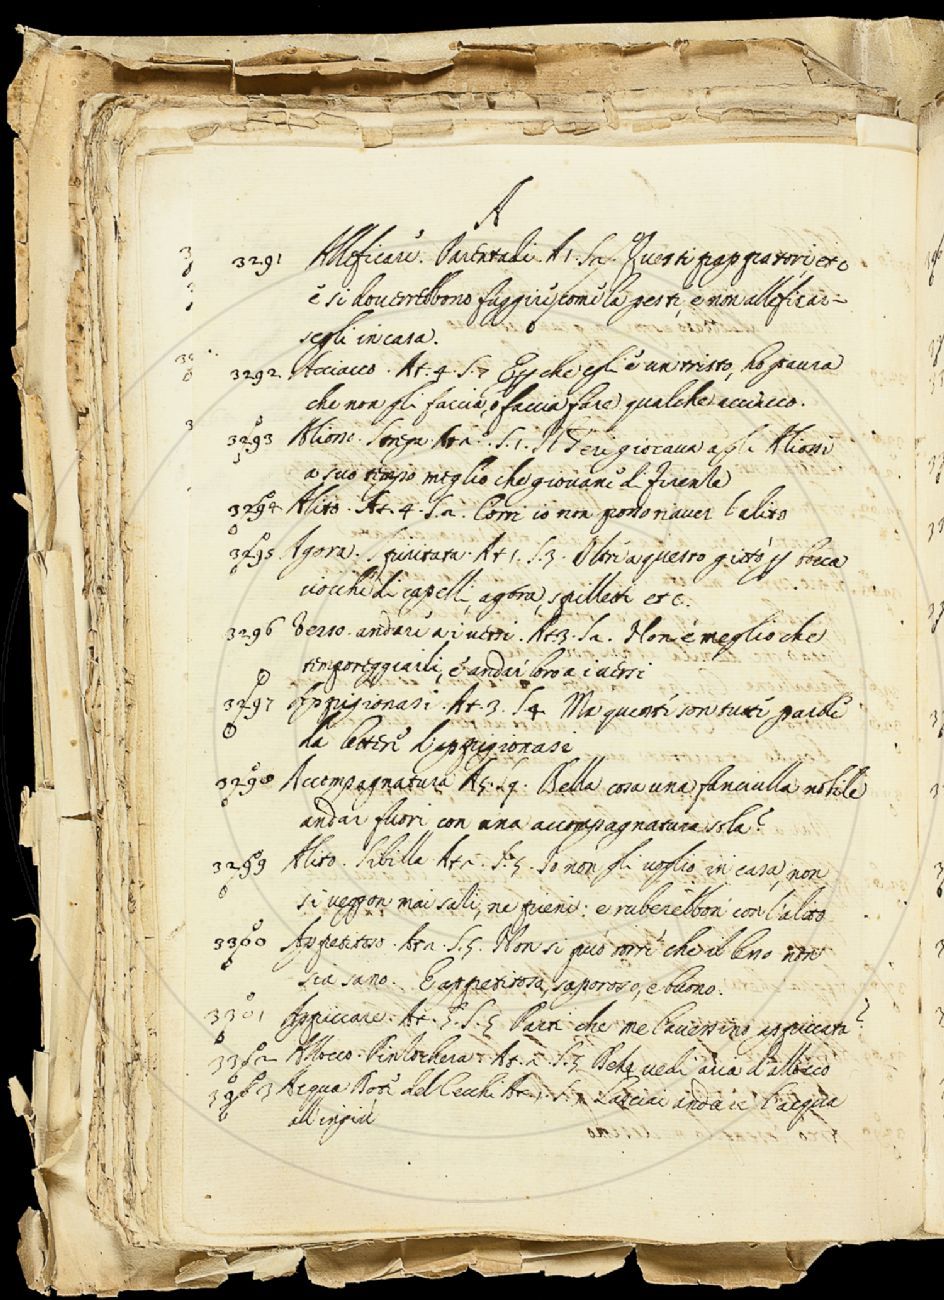 A
3291 Alleficare. Parentadi. At 1. Sc. Questi pappatori, etc
e si douerebbono fuggire come la peste, e non alleficar=
segli in casa.
3292. Acciacco. At. 4. S. 7 Essche egli è un tristo, ho paura
che non gli faccia, o faccia fare qualche acciacco.
3293 Aliossi. S. 1. Il Teri giocava agli Aliossi
a suo tempo meglio che giovane di Firenze
3294 Alito. At. 4. S. 2. Corri io non posso riaver l'alito
3295 Agora. Spiritata. At 1. S. 3. Oltre a questo gittò p bocca
ciocche di capelli, agora, spilletti etc.
3296 Verso. andare a i versi. At 3. S. 2. Non è meglio che
temporeggiarli, e andar loro a i versi
3297 Appigionasi. At. 3. S. 4 Ma queste son tutte parole
da lettere d'appigionasi
3298 Accompagnatura At 5. S. 9. Bella cosa una fanciulla nobile
andar fuori con una accompagnatura sola?
3299 Alito. Sibilla At 2. S. 5. Io non gli voglio in casa, non
si veggon mai satij, ne pieni: e ruberebbon con l'alito
3300 Appetitoso. At 2. S. 5. Non si può torre che il bene non
sia sano. E appetitoso, saporoso, e buono.
3301 Appiccare. At. 5. S. 5 Parti che me l'avessino appiccata?
3302 Allocco. Pinzochera. At. 2. S. 3 Beh, vedi aria d'allocco
3303 Acqua. Dote del Cecchi At S. Lasciar andare l'acqua
all'ingiu